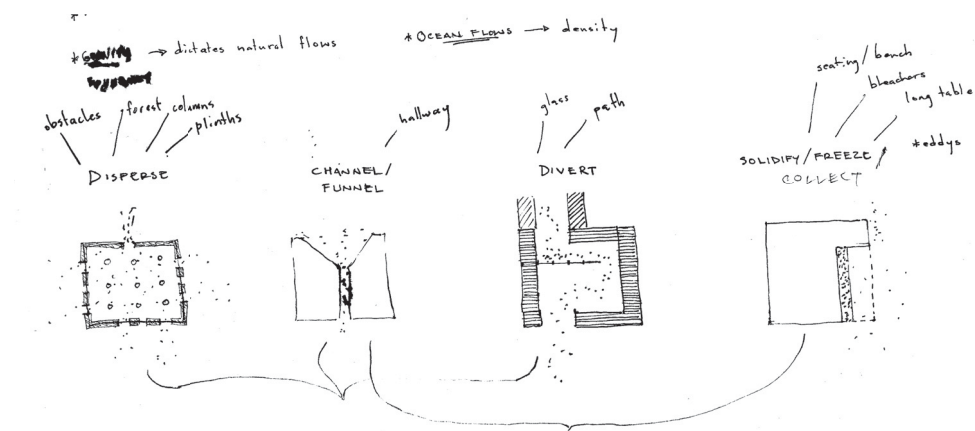 * Gravity → dictates natural flows
* OCEAN FLOWS → density
obstacles
forest
columns
plinths
DISPERSE
hallway
CHANNEL/
FUNNEL
glass
path
DIVERT
seating/bench
bleachers
long table
*eddys
SOLIDIFY/FREEZE /
COLLECT